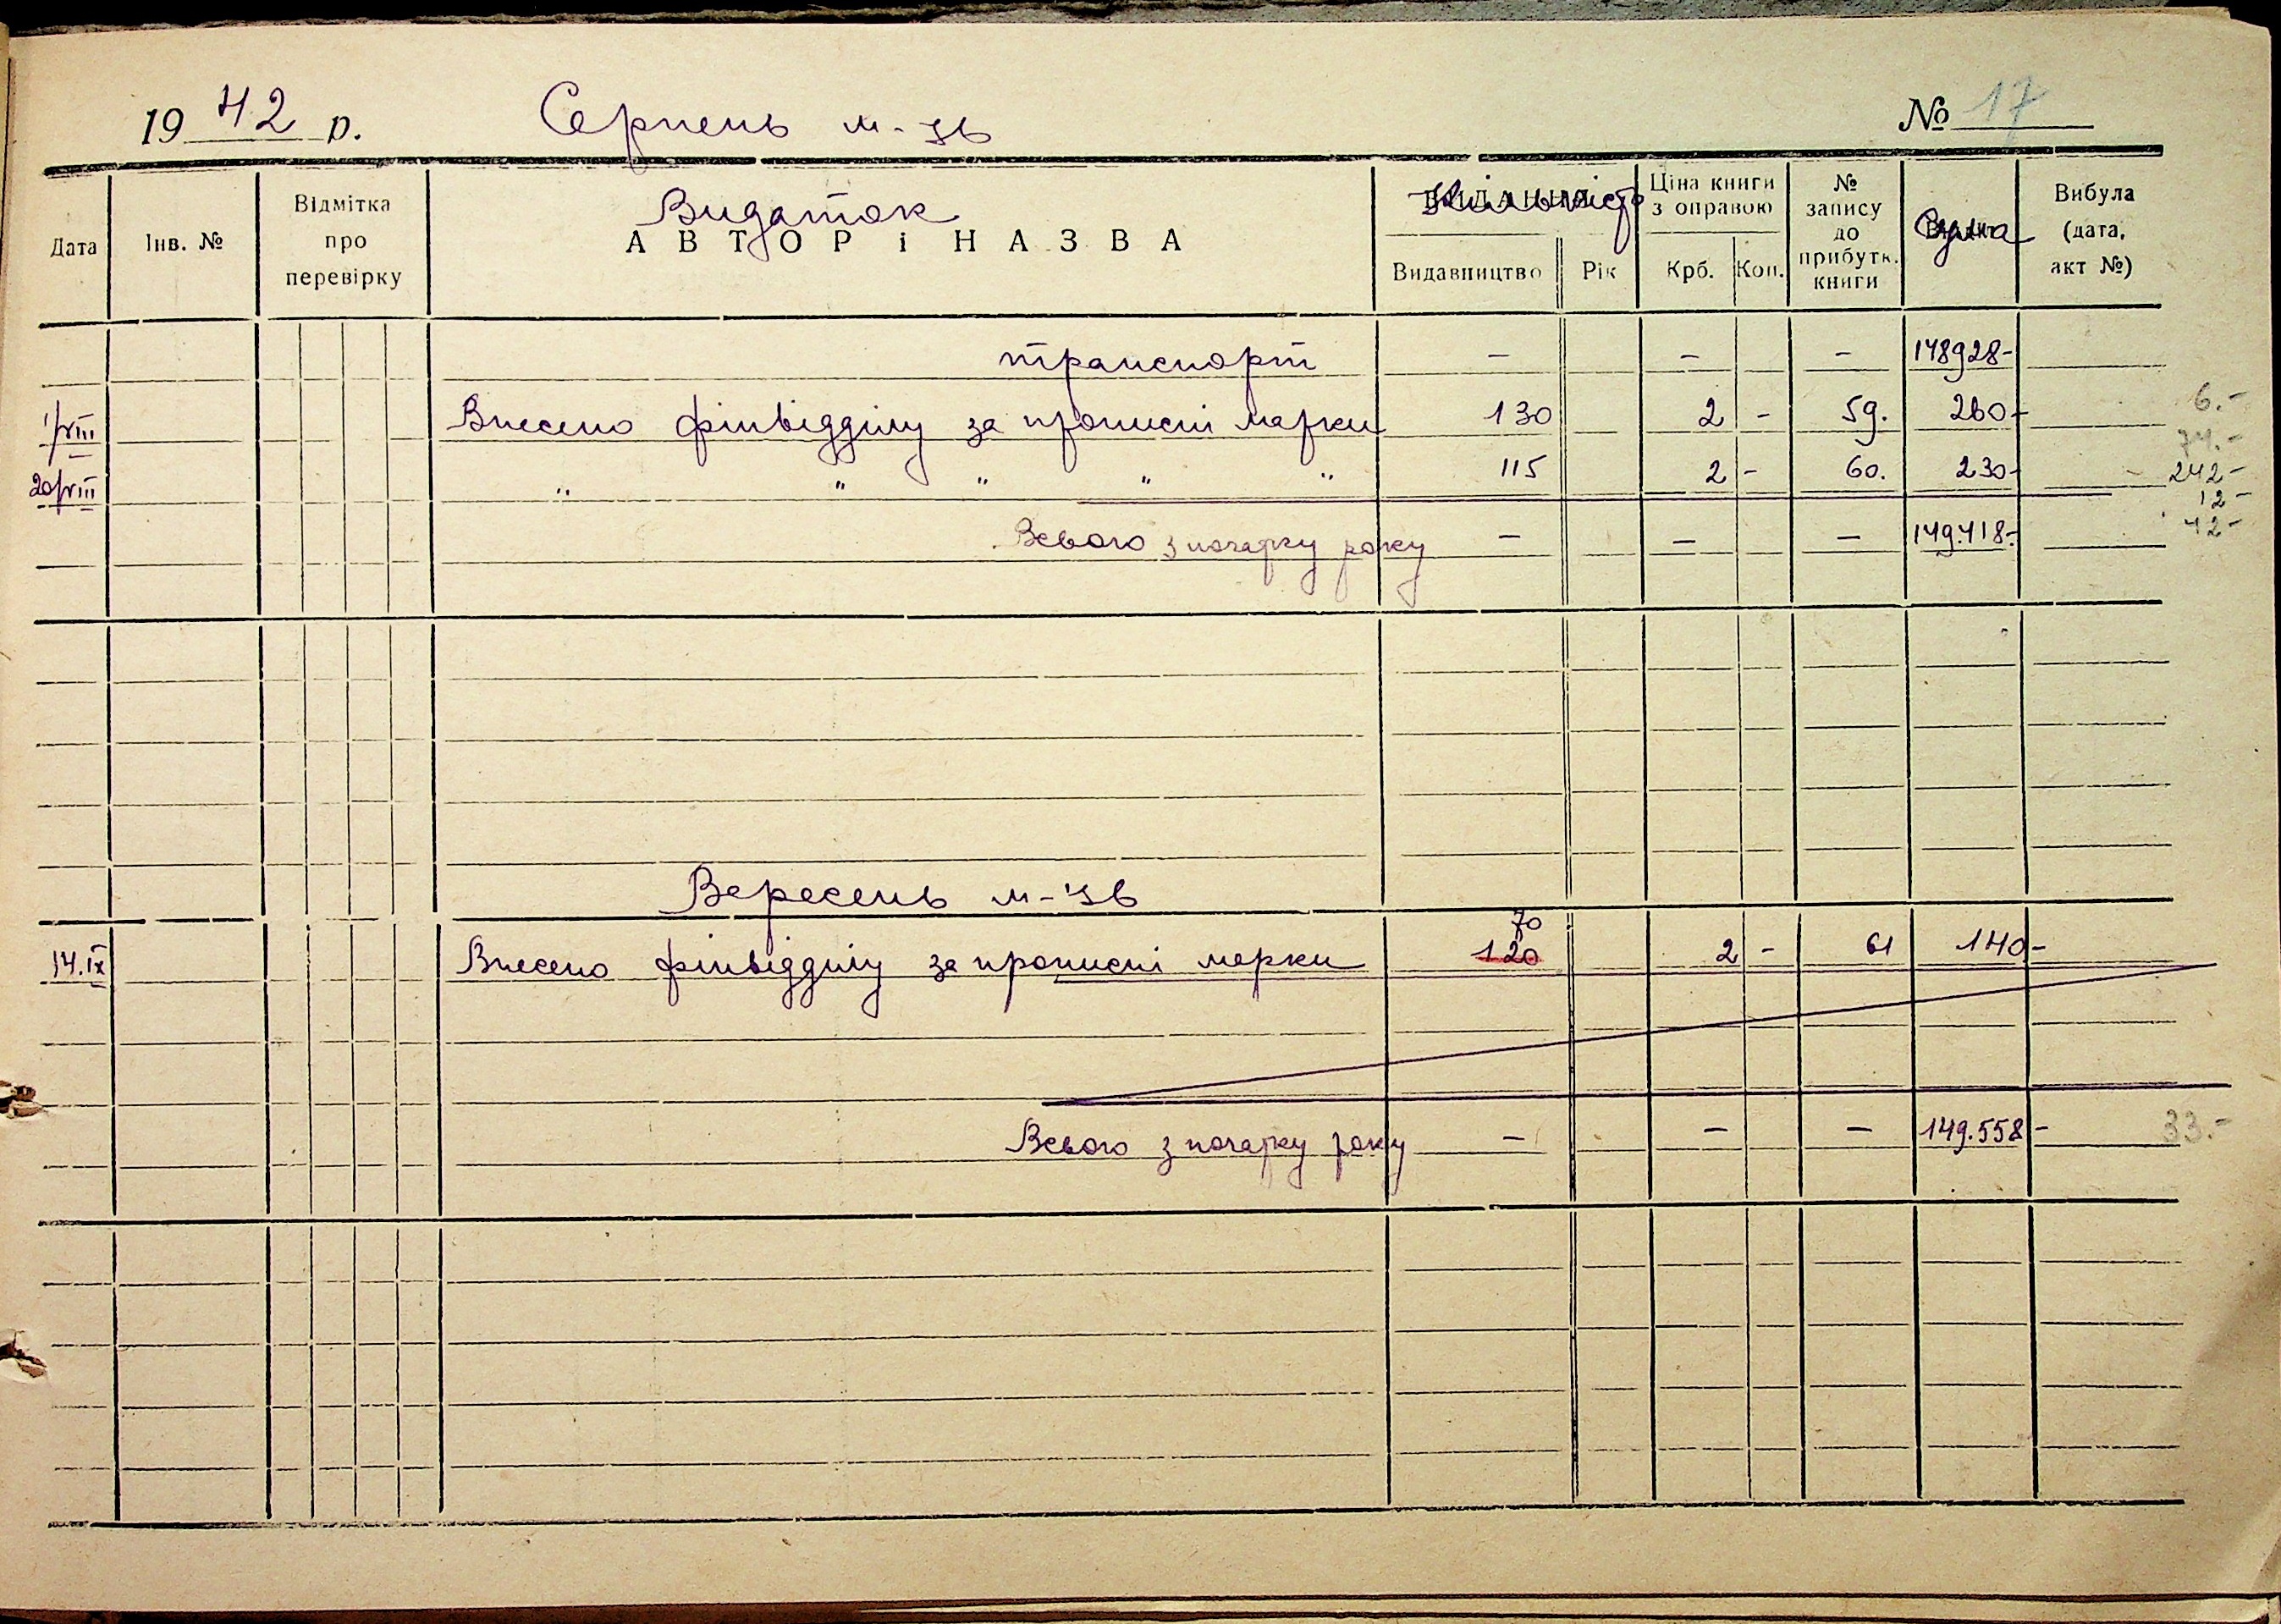 19 42 р. Серпень м-ць № 17
Дата Інв. № Відмітка про перевірку Видаток АВТОР і НАЗВА ВИДАННЯ Кількість Видавництво Рік Ціна книги з оправою Крб. Коп. № запису до прибутк. книги Сума Вибула (дата, акт №)
транспорт — — — 148928-
1/VIII Внесено фінвідділу за прописні марки 130 2 - 59. 260- 6.-
74.-
20/VIII " " " " " 115 2 - 60. 230- 242-
12-
Всього з початку року — — — 149.418.- 42-
Вересень м-ць
14.IX Внесено фінвідділу за прописні марки 120 70 2 - 61 140-
Всього з початку року — — — 149.558- 33.-